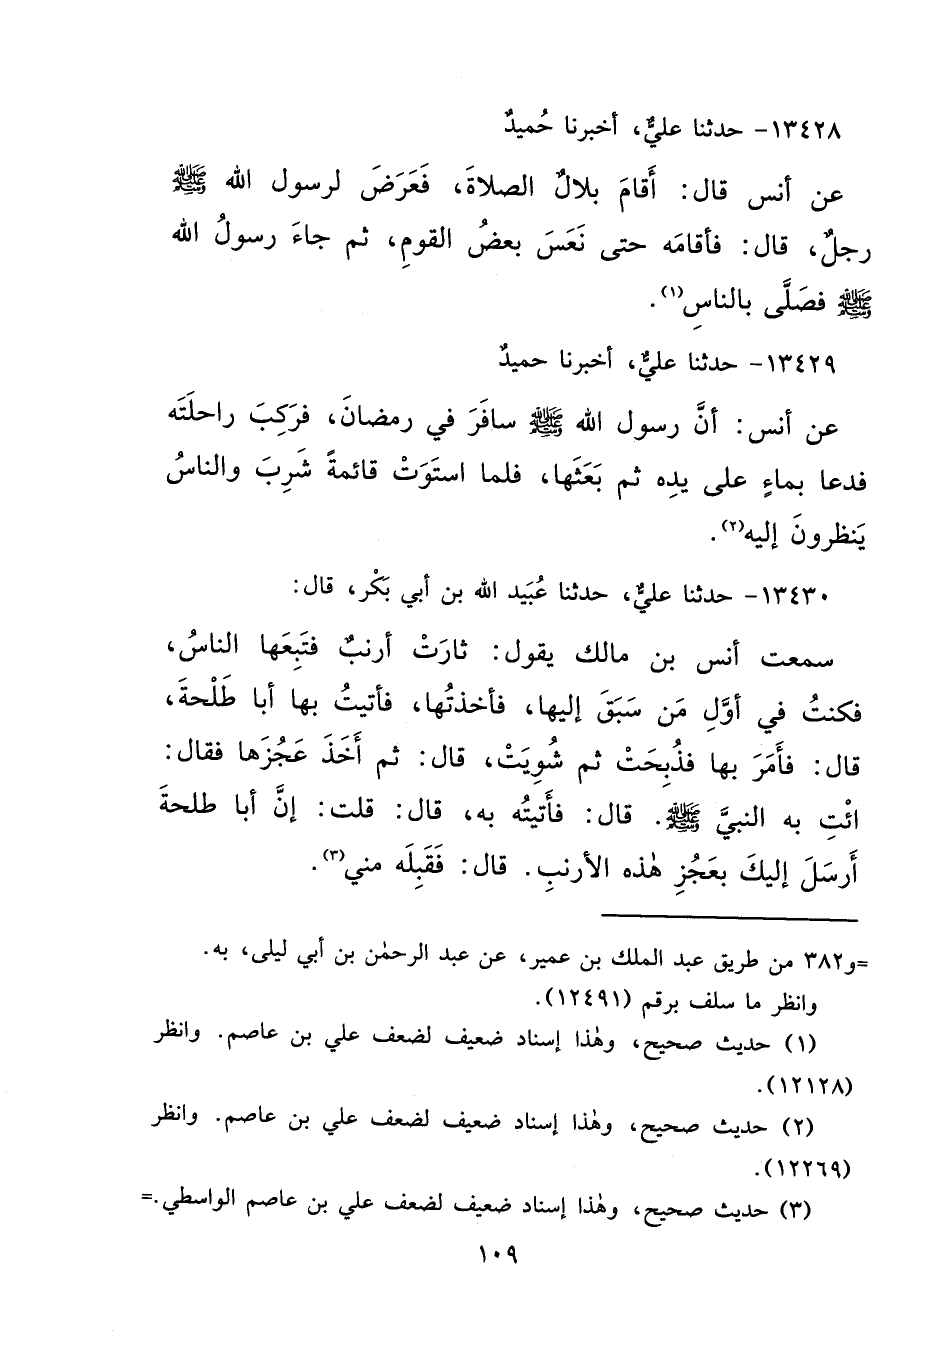 ١٣٤٢٨- حدثنا عليٌّ، أخبرنا حُميدٌ
عن أنس قال: أَقامَ بلالٌ الصلاةَ، فَعَرَضَ لرسول الله ﷺ
رجلٌ، قال: فأقامَه حتى نَعَسَ بعضُ القومِ، ثم جاءَ رسولُ الله
ﷺ فصَلَّى بالناسِ(١).
١٣٤٢٩- حدثنا عليٌّ، أخبرنا حميدٌ
عن أنس: أنَّ رسول الله ﷺ سافَرَ في رمضانَ، فرَكِبَ راحلَتَه
فدعا بماءٍ على يدِه ثم بَعَثَها، فلما استَوَتْ قائمةً شَرِبَ والناسُ
يَنظرونَ إليه(٢).
١٣٤٣٠- حدثنا عليٌّ، حدثنا عُبَيد الله بن أبي بَكْر، قال:
سمعت أنس بن مالك يقول: ثارَتْ أرنبٌ فتَبِعَها الناسُ،
فكنتُ في أوَّلِ مَن سَبَقَ إليها، فأخذتُها، فأتيتُ بها أبا طَلْحةَ،
قال: فأَمَرَ بها فذُبِحَتْ ثم شُوِيَتْ، قال: ثم أَخَذَ عَجُزَها فقال:
ائْتِ به النبيَّ ﷺ. قال: فأَتيتُه به، قال: قلت: إنَّ أبا طلحةَ
أَرسَلَ إليكَ بعَجُزِ هٰذه الأرنبِ. قال: فَقَبِلَه مني(٣).
=و٣٨٢ من طريق عبد الملك بن عمير، عن عبد الرحمٰن بن أبي ليلى، به.
وانظر ما سلف برقم (١٢٤٩١).
(١) حديث صحيح، وهٰذا إسناد ضعيف لضعف علي بن عاصم. وانظر
(١٢١٢٨).
(٢) حديث صحيح، وهٰذا إسناد ضعيف لضعف علي بن عاصم. وانظر
(١٢٢٦٩).
(٣) حديث صحيح، وهٰذا إسناد ضعيف لضعف علي بن عاصم الواسطي.=
١٠٩